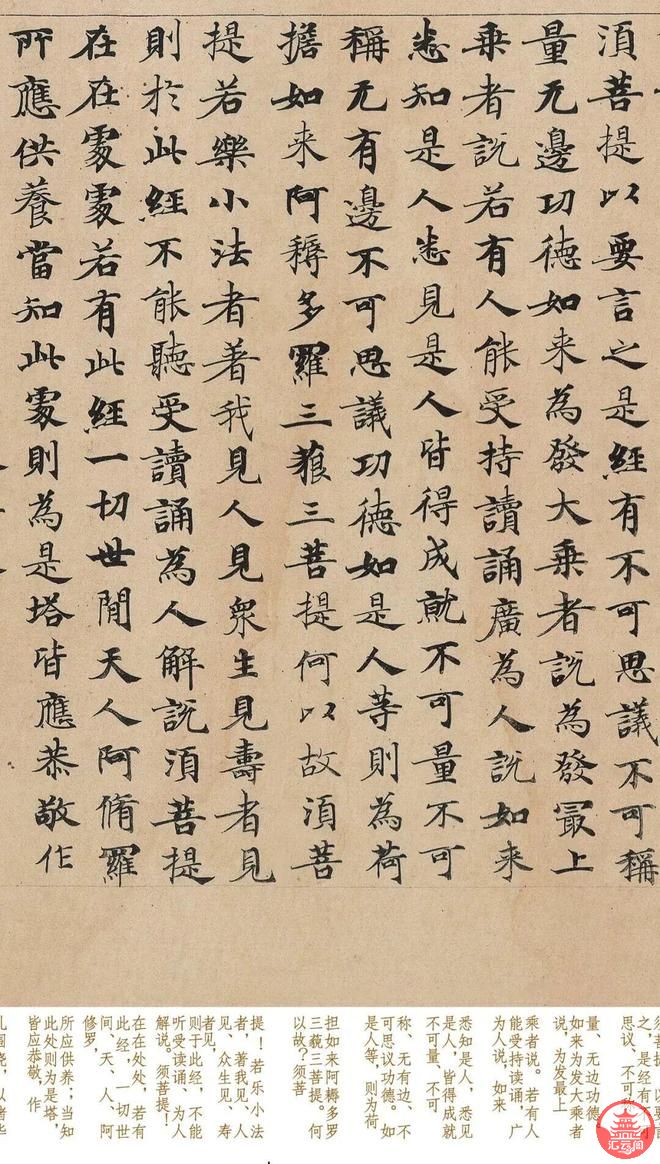 須菩提以要言之是經有不可思議不可稱
量无邊功德如来為發大乗者說為發冣上
乗者說若有人能受持讀誦廣為人說如来
悉知是人悉見是人皆得成就不可量不可
稱无有邊不可思議功德如是人等則為荷
擔如来阿耨多羅三藐三菩提何以故須菩
提若樂小法者著我見人見衆生見壽者見
則於此經不能聽受讀誦為人解說須菩提
在在處處若有此經一切世間天人阿脩羅
所應供養當知此處則為是塔皆應恭敬作
之，是经有不可
思议、不可
量、无边功德，
如来为发大乘者
说，为发最上
乘者说。若有人
能受持读诵，广
为人说，如来
悉知是人，悉见
是人，皆得成就
不可量、不可
称、无有边、不
可思议功德。如
是人等，则为荷
担如来阿耨多罗
三藐三菩提。何
以故？须菩
提！若乐小法
者，著我见、人
见、众生见、寿
者见，
则于此经，不能
听受读诵、为人
解说。须菩提！
在在处处，若有
此经，一切世
间、天、人、阿
修罗，
所应供养；当知
此处则为是塔，
皆应恭敬，作
汇云阁